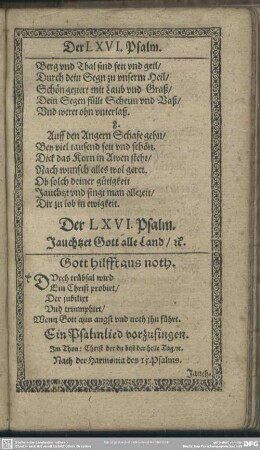 Der LXVI. Psalm.
Berg vnd Thal sind fett vnd geil/
Durch dein Segn zu vnserm Heil/
Schön geziert mit Laub vnd Graß/
Dein Segen füllt Scheun vnd Vaß/
Vnd weret ohn vnterlaß.
8.
Auff den Angern Schafe gehn/
Bey viel tausend fett vnd schön.
Dick das Korn in Awen steht/
Nach wunsch alles wol geret.
Ob solch deiner gütigkeit
Jauchtzt vnd singt man allezeit/
Dir zu lob in ewigkeit.
Der LXVI. Psalm.
Jauchtzet Gott alle Land/ ꝛc.
Gott hilfft aus noth.
DVrch trübsal wird
Ein Christ probirt/
Der jubilirt
Vnd triumphirt/
Wenn Gott aus angst vnd noth ihn führt.
Ein Psalmlied vorzusingen.
Im Thon: Christ der du bist der helle Tag/ꝛc.
Nach der Harmonia des 15. Psalms.
Jauch-